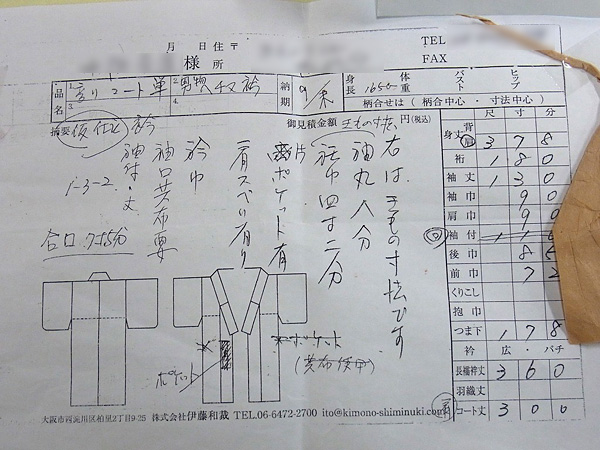 月 日 住 〒
様 所
TEL
FAX
品名 1. コート 単 2. 男物 衿
3. 4.
納期 9/末
身長 165cm 体重 バスト ヒップ
柄合せは(柄合中心・寸法中心)
摘要 仮仕立 衿
御見積金額 円(税込)
尺 寸 分
身丈 背 肩 3 7 8
裄 1 8 0
袖丈 1 3 0
袖巾 9 0
肩巾 9 0
袖付
後巾 8
前巾 7 2
くりこし
抱巾
つま下 1 7 8
衿 広・バチ
長襦袢丈 3 6 0
羽織丈
コート丈 3 0 0
右は きもの寸法です
袖丸 八分
袖巾 四寸二分
ポケット 有
肩スベリ 有り
衿巾
袖口 共布
袖付・丈
1-3-2
合口
ポケット
ポケット
大阪市西淀川区柏里2丁目9-25 株式会社伊藤和裁 TEL.06-6472-2700 ito@kimono-shiminuki.com